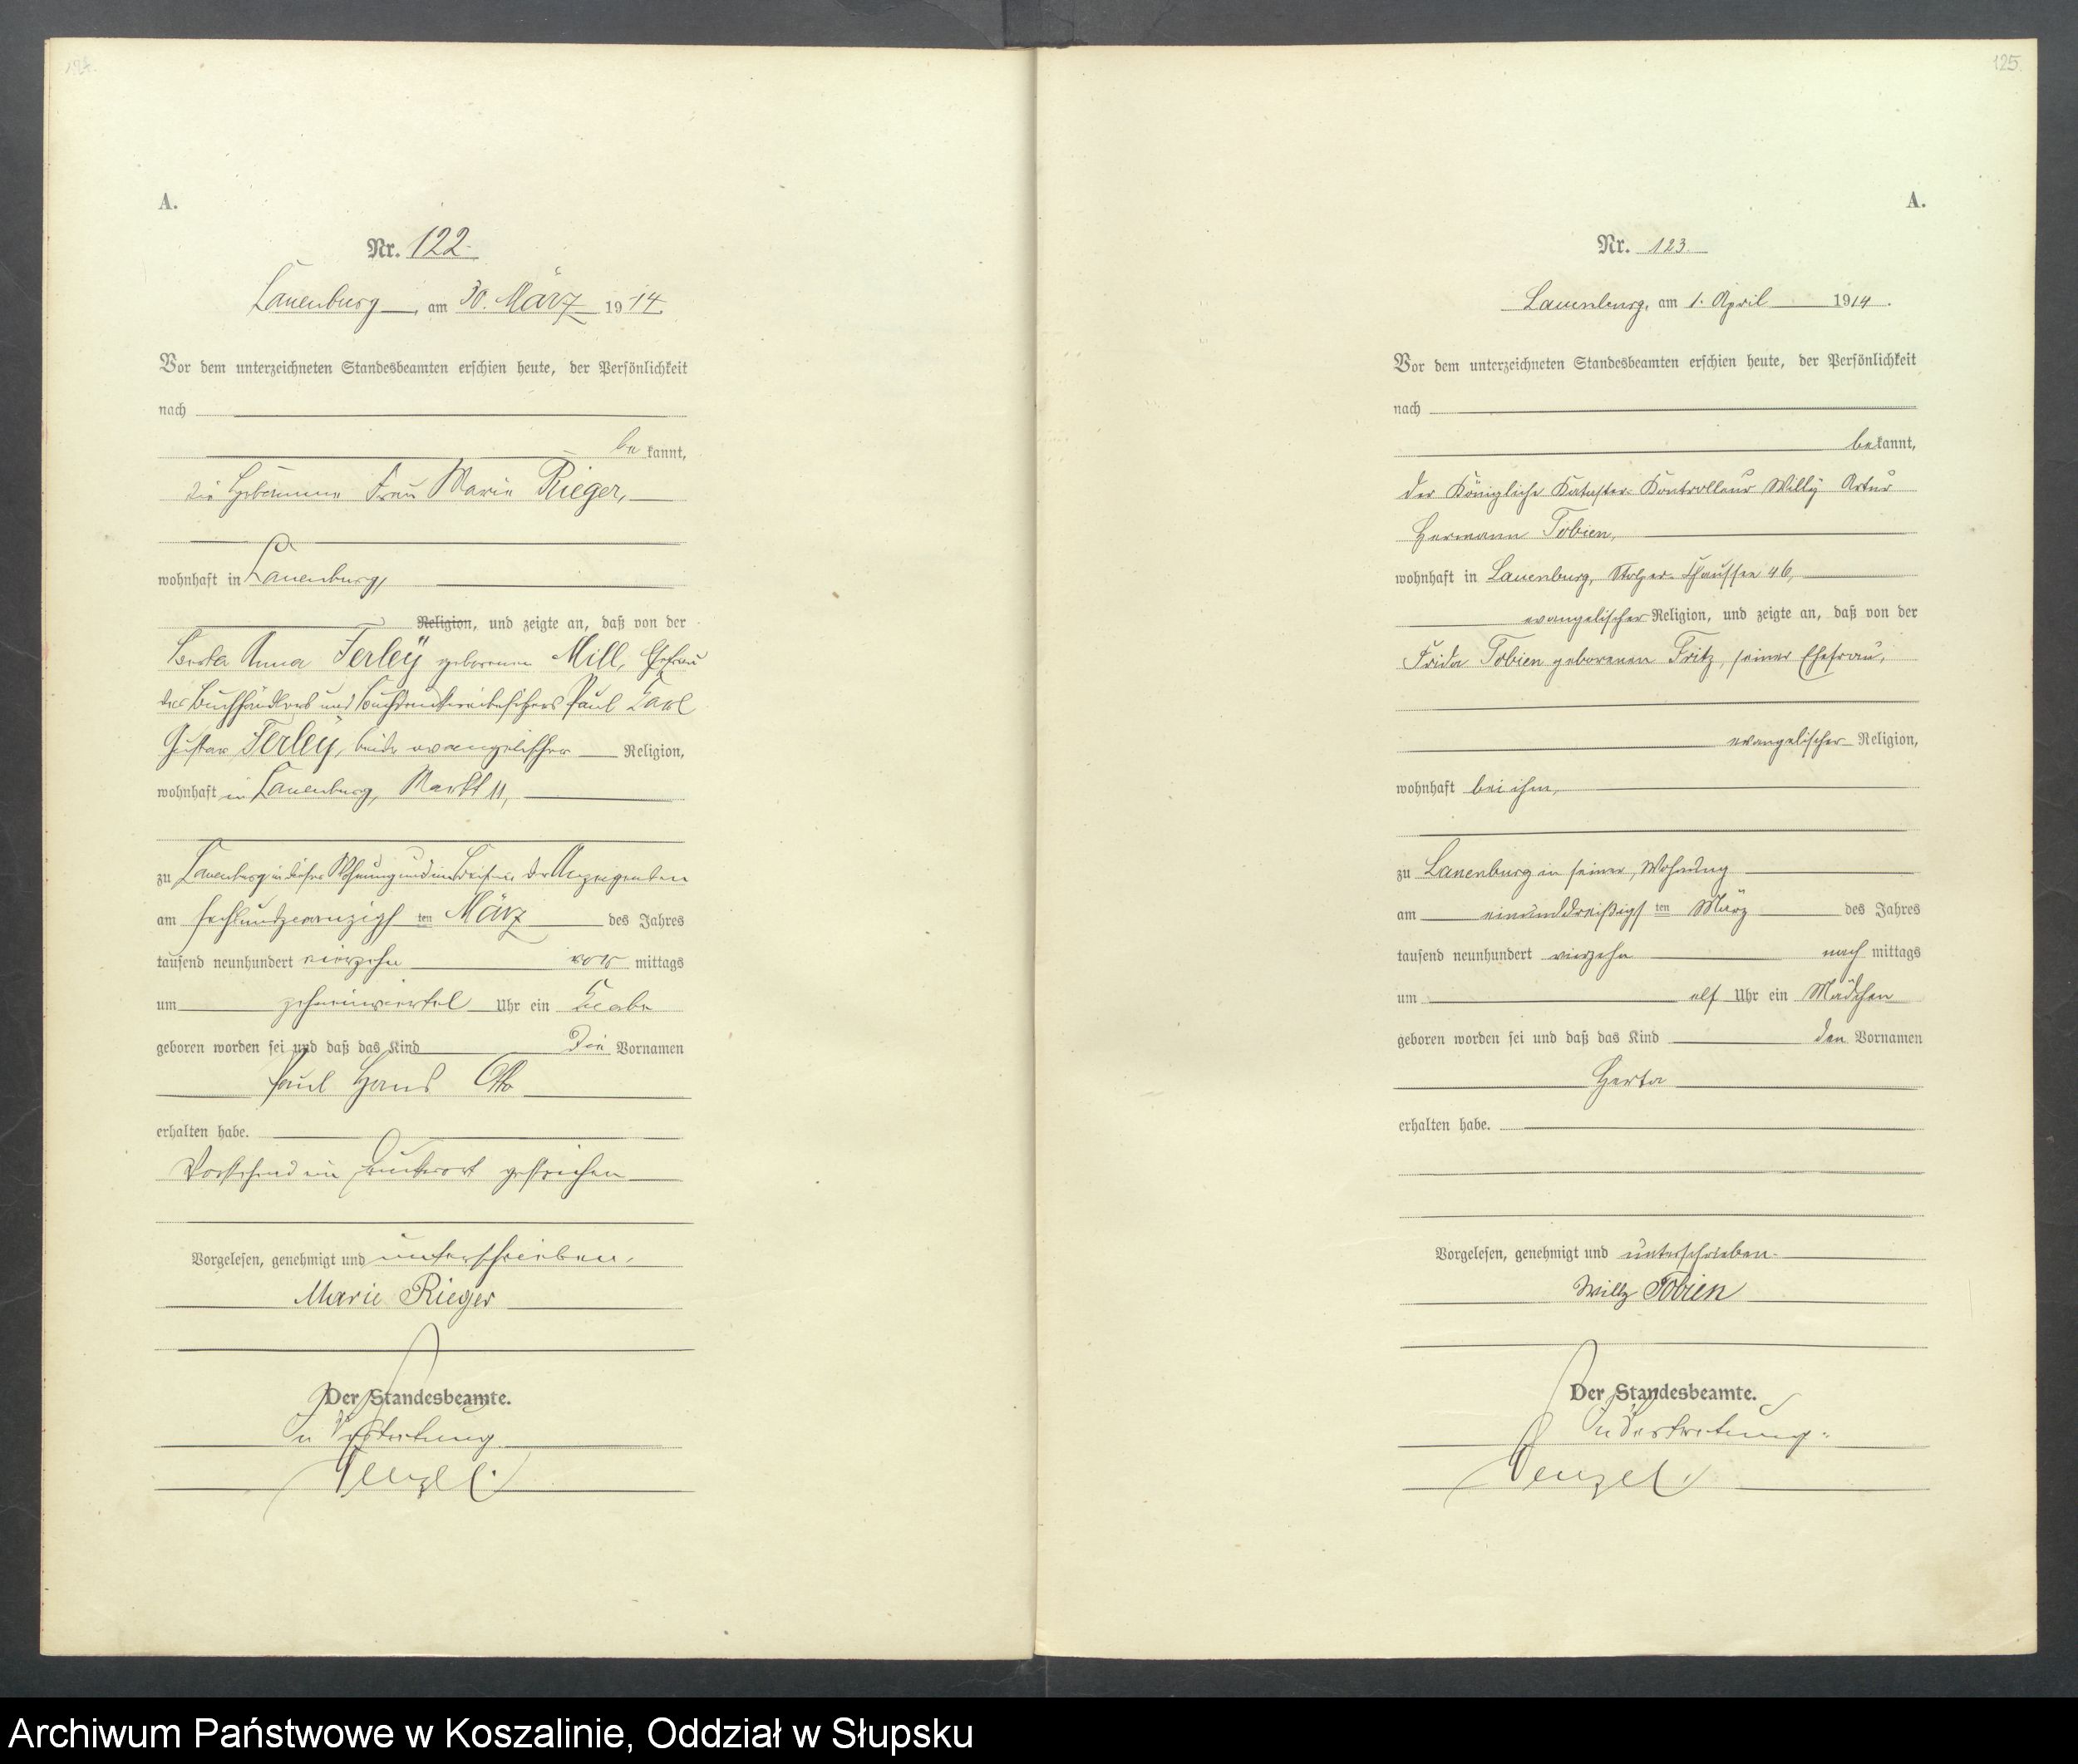 124.
A.
Nr. 122.
Lauenburg, am 30. März 1914.
Vor dem unterzeichneten Standesbeamten erschien heute, der Persönlichkeit
nach
bekannt,
die Hebamme Frau Marie Rieger,
wohnhaft in Lauenburg,
Religion, und zeigte an, daß von der
Anna Ferley geborenen Mill, Ehefrau
des Buchhändlers und Buchdruckereibesitzers Paul Karl
Gustav Ferley, beide evangelischer Religion,
wohnhaft in Lauenburg, Markt 11,
zu Lauenburg in dieser Wohnung und im Beisein der Anzeigenden
am sechsundzwanzigsten März des Jahres
tausend neunhundert vierzehn vormittags
um zehneinviertel Uhr ein Knabe
geboren worden sei und daß das Kind die Vornamen
Paul Hans Otto
erhalten habe.
Vorstehend ein Druckwort gestrichen
Vorgelesen, genehmigt und unterschrieben.
Marie Rieger
Der Standesbeamte.
In Vertretung.
Wenzel.
125.
A.
Nr. 123.
Lauenburg, am 1. April 1914.
Vor dem unterzeichneten Standesbeamten erschien heute, der Persönlichkeit
nach
bekannt,
der Königliche Kataster-Kontrolleur Willy Artur
Hermann Tobien,
wohnhaft in Lauenburg, Stolper-Chaussee 46,
evangelischer Religion, und zeigte an, daß von der
Frida Tobien geborenen Fritz, seiner Ehefrau,
evangelischer Religion,
wohnhaft bei ihm,
zu Lauenburg in seiner Wohnung
am einunddreißigsten März des Jahres
tausend neunhundert vierzehn nachmittags
um elf Uhr ein Mädchen
geboren worden sei und daß das Kind den Vornamen
Herta
erhalten habe.
Vorgelesen, genehmigt und unterschrieben.
Willy Tobien
Der Standesbeamte.
In Vertretung.
Wenzel.
Archiwum Państwowe w Koszalinie, Oddział w Słupsku